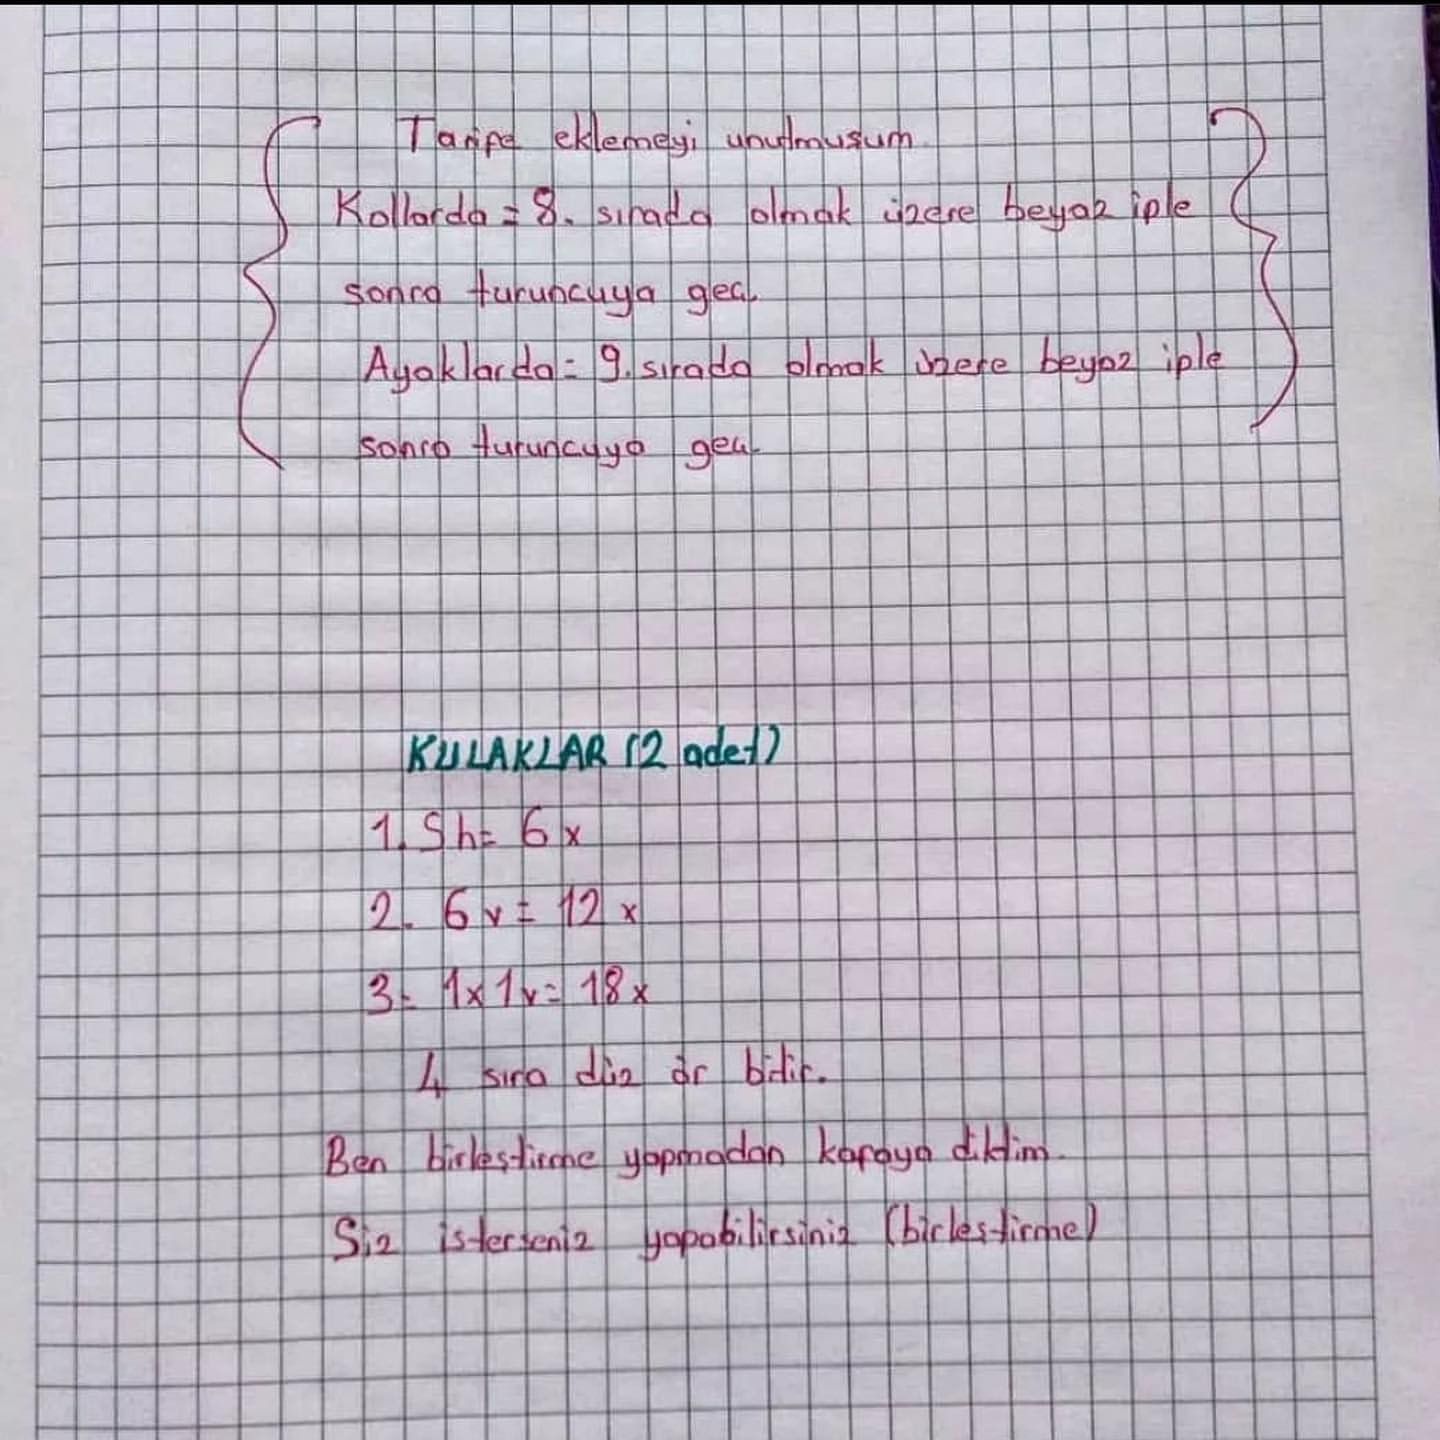 Tarife eklemeyi unutmuşum.
Kollarda = 8. sırada olmak üzere beyaz iple
sonra turuncuya geç.
Ayaklarda = 9. sırada olmak üzere beyaz iple
sonra turuncuya geç.
KULAKLAR (2 adet)
1. Sh = 6x
2. 6v = 12x
3- 1x1v = 18x
4 sıra düz ör bitir.
Ben birleştirme yapmadan kafaya diktim.
Siz isterseniz yapabilirsiniz (birleştirme)